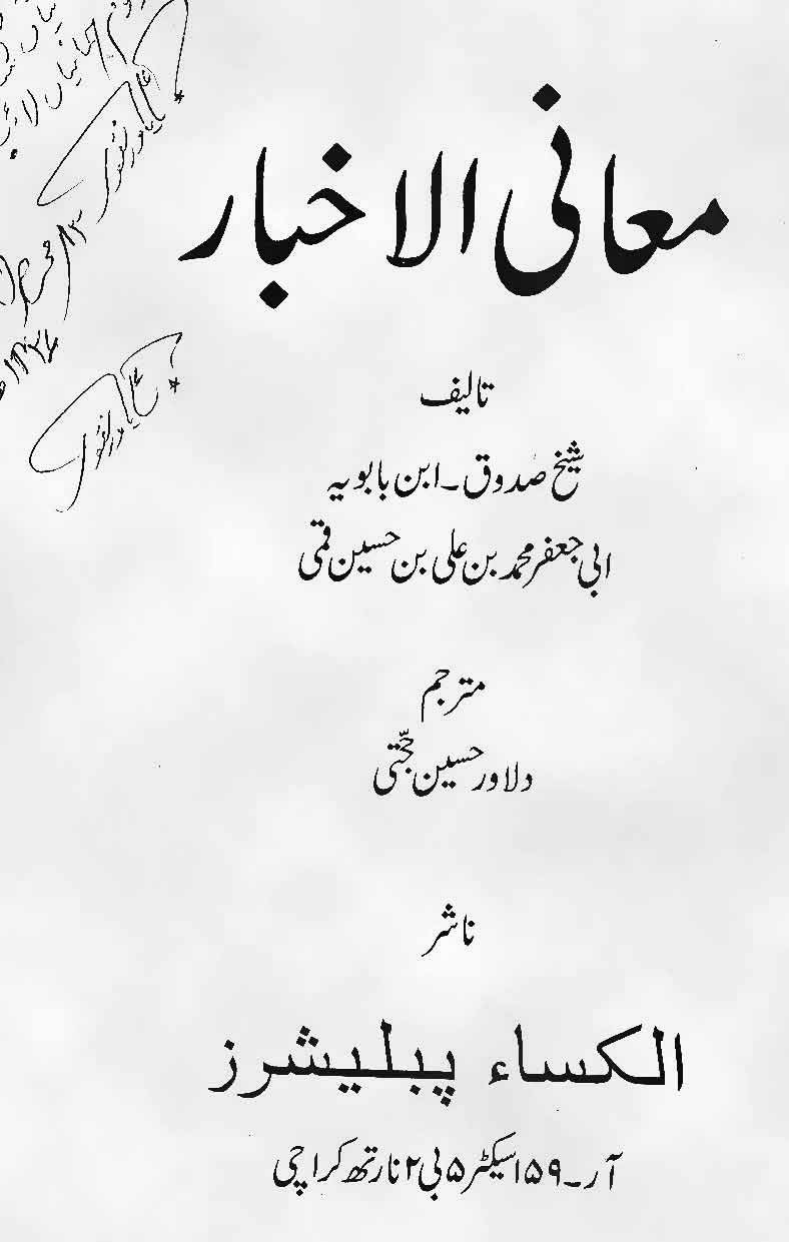 معانی الاخبار
تالیف
شیخ صدوق ۔ ابن بابویہ
ابی جعفر محمد بن علی بن حسین قمی
مترجم
دلاور حسین حجّتی
ناشر
الکساء پبلیشرز
آر۔ ۱۵۹ سیکٹر ۵ بی ۲ نارتھ کراچی